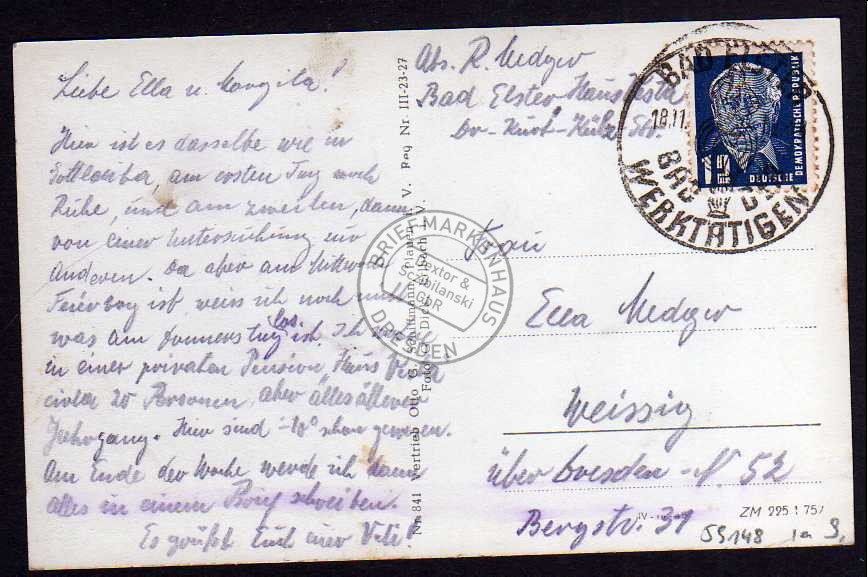 Liebe Ella u. Margita!
Hier ist es dasselbe wie in
Gottleuba, am ersten Tag noch
Ruhe, und am zweiten, dann
von einer Untersuchung zur
Anderen. Da aber am Mittwoch
Feiertag ist, weiss ich noch nicht
was am Donnerstag los ist. Ich
in einer privaten Pension "Haus Vesta
20 Personen, aber alles älterer
Jahrgang. Hier sind -10° schon gewesen.
Am Ende der Woche werde ich dann
alles in einem Brief schreiben.
Es grüßt Euch euer Vati!
Abs. R. Metzger
Bad Elster Haus Vesta
Dr-Kurt-Külz-Str.
Frau
Ella Metzger
Weissig
über Dresden - N. 52
Bergstr. 31
BAD ELSTER
18.11.
BAD DER
WERKTÄTIGEN
DEUTSCHE
DEMOKRATISCHE REPUBLIK
Nr. 841 Vertrieb Otto G. Planen i. V. Reg Nr. III-23-27
Foto
BRIEFMARKENHAUS
Textor &
Schibilanski
GbR
DRESDEN
ZM 225 1 75/
59148